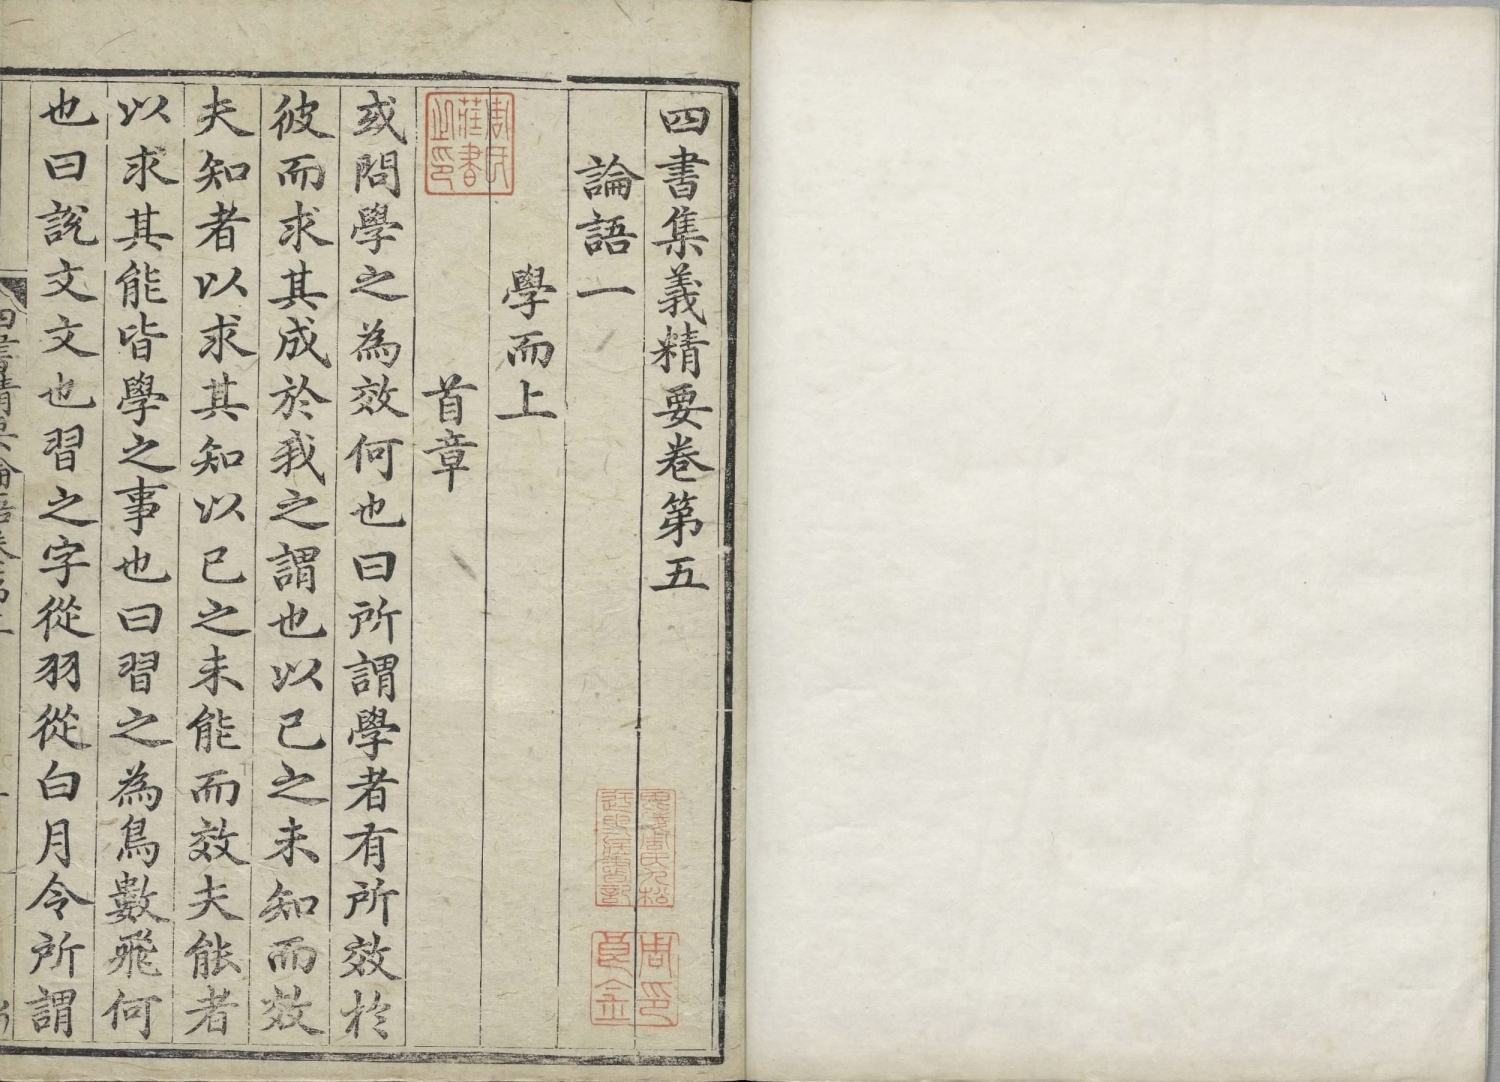 四書集義精要卷第五
論語一
學而上
首章
或問學之為效何也曰所謂學者有所效於
彼而求其成於我之謂也以已之未知而效
夫知者以求其知以已之未能而效夫能者
以求其能皆學之事也曰習之為鳥數飛何
也曰說文文也習之字從羽從白月令所謂
周印良金